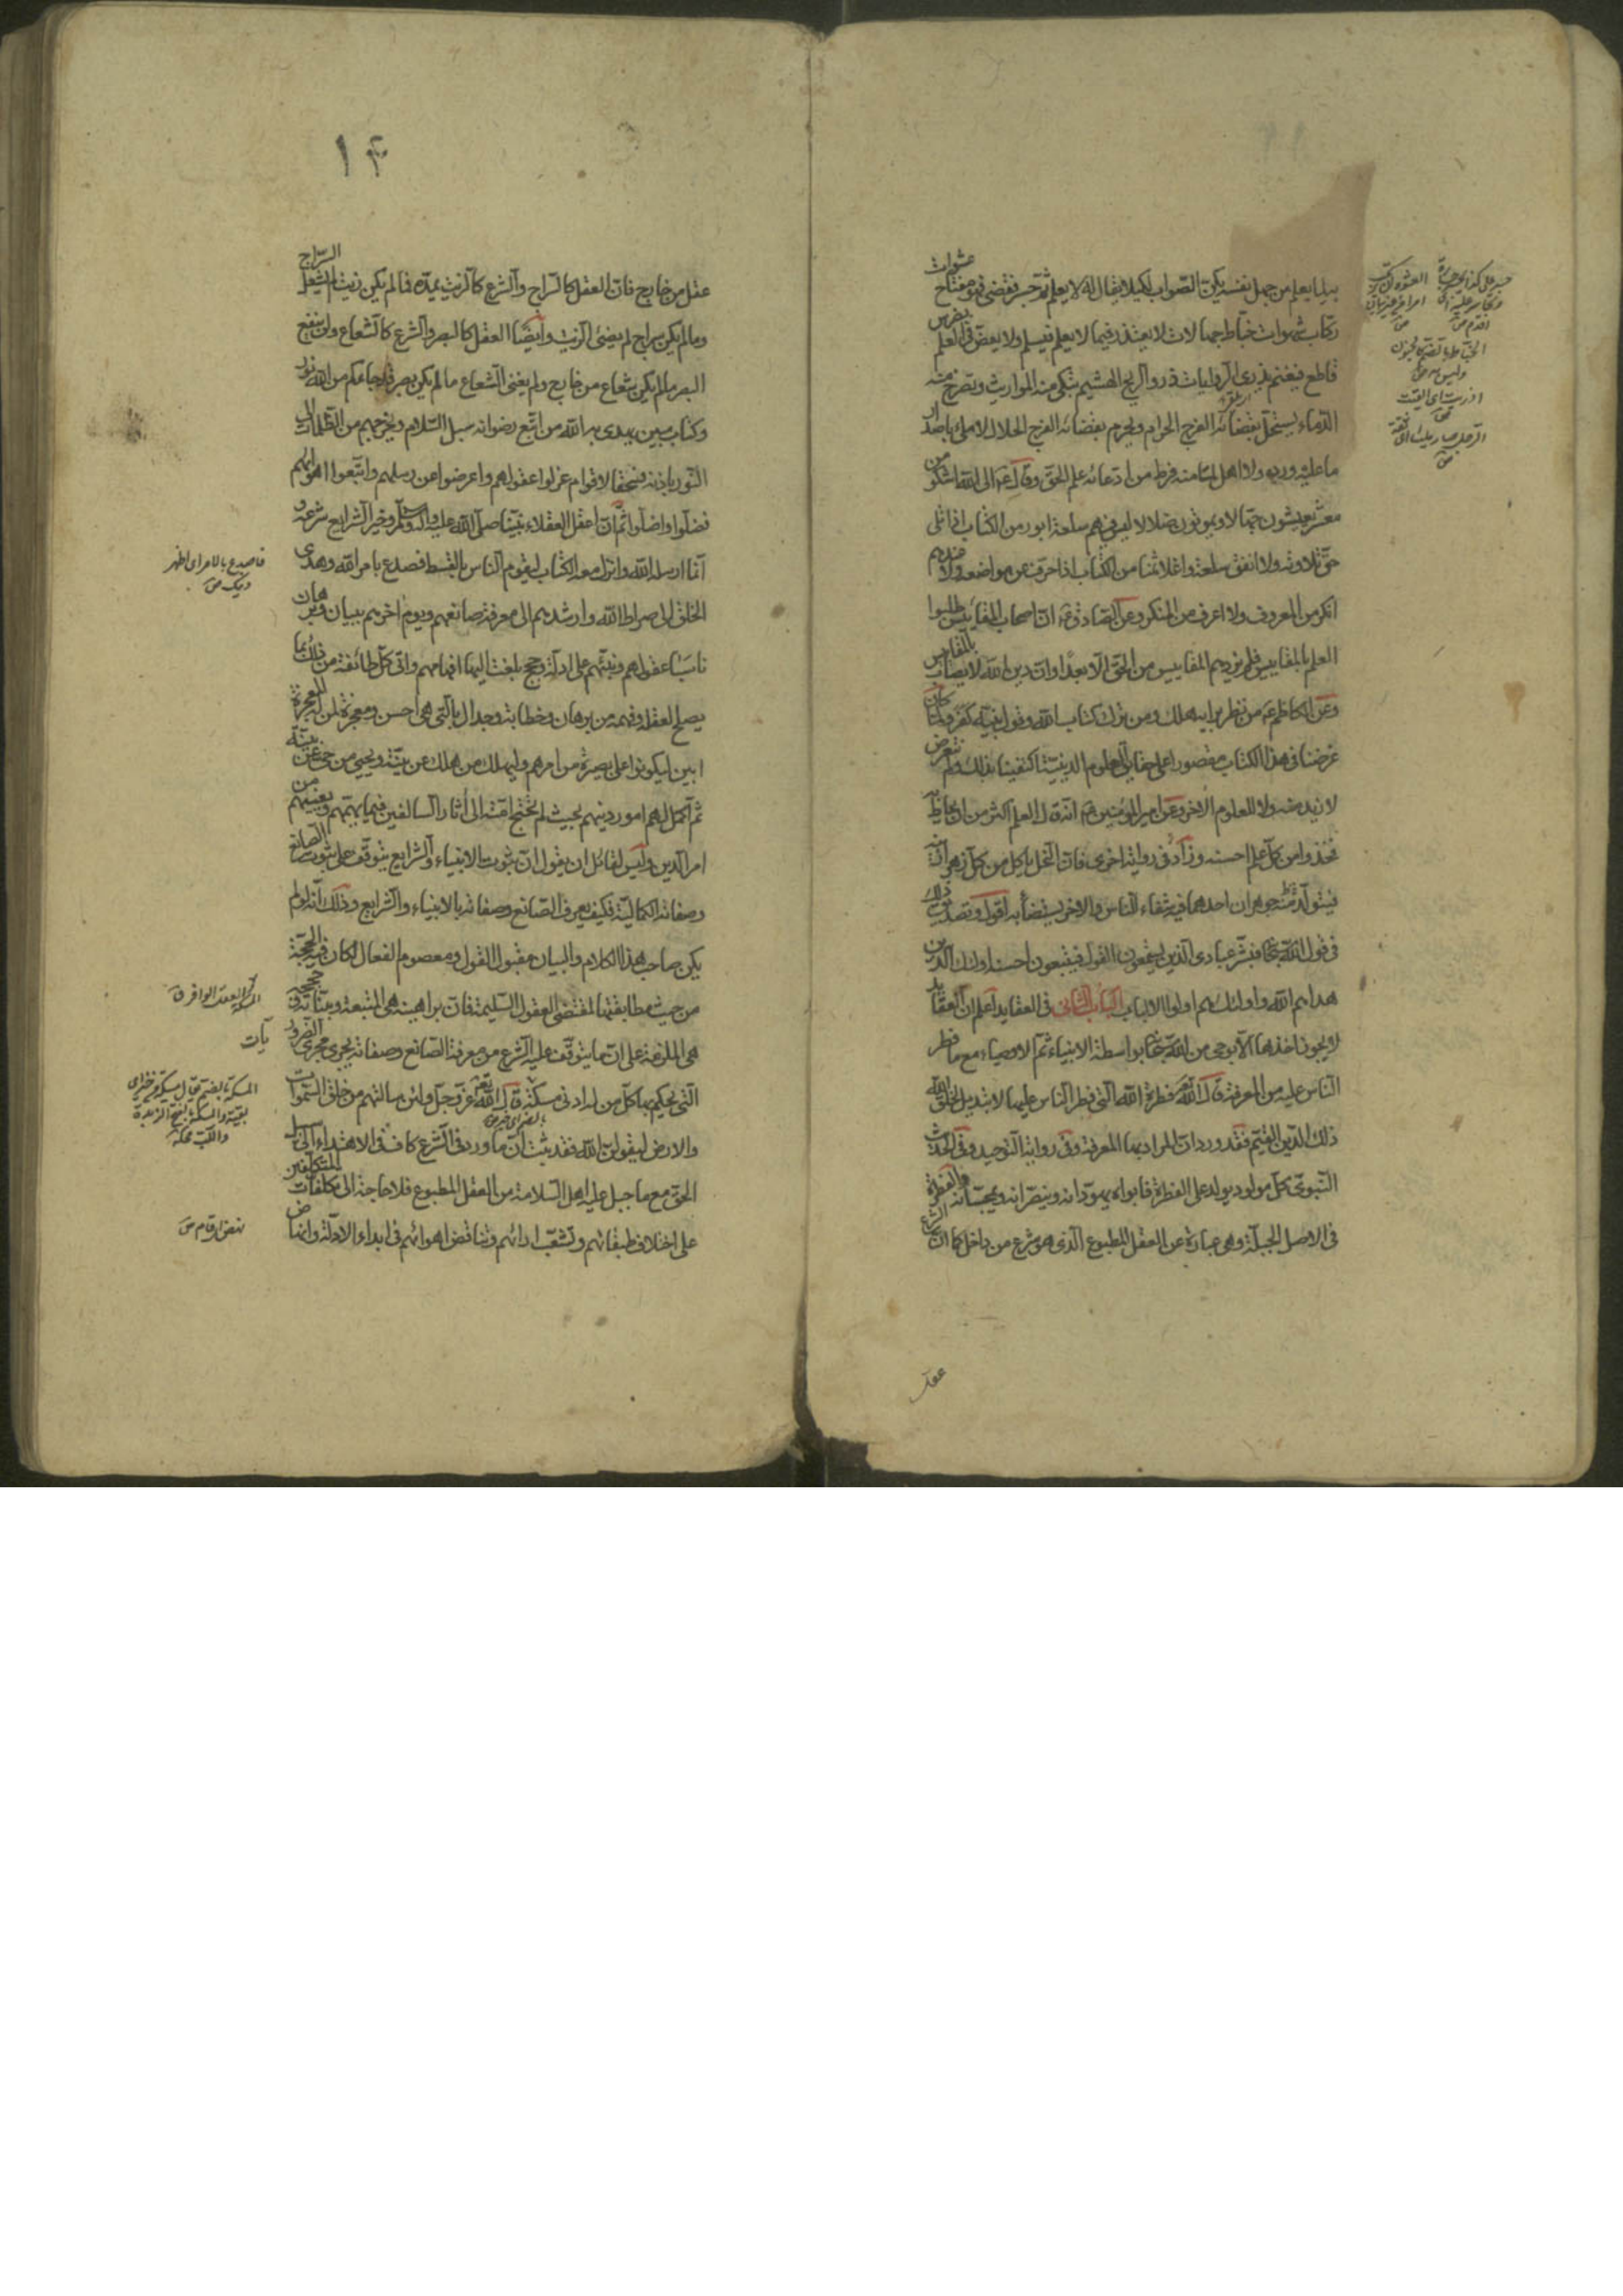 عشوات
بما يعلم من جهل نفسه يكن الصواب لكيلا يقال له لا يعلم ثم جسر فقضى فهو مفتاح
ركاب شهوات خباط جهالات لا يعتذر فيما لا يعلم فيسلم ولا يعض في العلم بضرس
قاطع فيغنم يذري الروايات ذرو الريح الهشيم تبكي منه المواريث وتصرخ منه
الدماء يستحل بقضائه الفرج الحرام ويحرم بقضائه الفرج الحلال لا ملئ باصدار
ما عليه ورد ولا اهل لما منه فرط من ادعائه علم الحق وقال ع الى الله اشكو من
معشر يعيشون جهالا ويموتون ضلالا ليس فيهم سلعة ابور من الكتاب اذا تلى
حق تلاوته ولا انفق سلعة واغلا ثمنا من الكتاب اذا حرف عن مواضعه ولا عندهم
انكر من المعروف ولا اعرف من المنكر وعن الصادق ع ان اصحاب المقاييس طلبوا
العلم بالمقاييس فلم تزدهم المقاييس من الحق الا بعدا وان دين الله لا يصاب بالمقاييس
وعن الكاظم ع من نظر برايه هلك ومن ترك كتاب الله وقول نبيه كفر ولما كان
غرضنا في هذا الكتاب مقصورا على حقايق العلوم الدينية اكتفينا بذلك ولم نتعرض
لا نريد منه ولا للعلوم الاخر وعن امير المؤمنين ع انه قال العلم اكثر من ان يحاط به
فخذوا من كل علم احسنه وزاد في رواية اخرى فان النحل ياكل من كل زهر ازينه
فيتولد منه جوهران احدهما فيه شفاء للناس والاخر يستضاء به اقول وتصديق ذلك
في قول الله سبحانه فبشر عبادي الذين يستمعون القول فيتبعون احسنه اولئك الذين
هداهم الله واولئك هم اولوا الالباب الباب الثاني في العقايد اعلم ان العقايد
لا يجوز اخذها الا بوحي من الله سبحانه بواسطة الانبياء ثم الاوصياء مع ما فطر
الناس عليه من المعرفة قال الله تعالى فطرة الله التي فطر الناس عليها لا تبديل لخلق الله
ذلك الدين القيم فقد ورد ان المراد بها المعرفة وفي رواية التوحيد وفي الحديث
النبوي كل مولود يولد على الفطرة فابواه يهودانه وينصرانه ويمجسانه والفطرة
في الاصل الجبلة وهي عبارة عن العقل المطبوع الذي هو شرع من داخل كما ان الشرع
عقل
الخباط بالضم كالجنون
وليس به ص
١٤
عقل من خارج فان العقل كالسراج والشرع كالزيت يمده فما لم يكن زيت لم يشعل السراج
وما لم يكن سراج لم يضئ الزيت وايضا العقل كالبصر والشرع كالشعاع ولن ينفع
البصر ما لم يكن شعاع من خارج ولم يغني الشعاع ما لم يكن بصر قد جاءكم من الله نور
وكتاب مبين يهدي به الله من اتبع رضوانه سبل السلام ويخرجهم من الظلمات الى
النور باذنه فسحقا لاقوام عزلوا عقولهم واعرضوا عن رسلهم واتبعوا اهوائهم
فضلوا واضلوا ثم ان اعقل العقلاء نبينا صلى الله عليه واله وسلم وخير الشرايع شرعه و
انما ارسله الله وانزل معه الكتاب ليقوم الناس بالقسط فصدع بامر الله وهدى
الخلق الى صراط الله وارشدهم الى معرفة صانعهم ويوم اخرهم ببيان وبرهان
ناسبا عقولهم ونبههم على ادلة وحجج بلغت اليها افهامهم واتى كل طائفة من ذلك بما
يصلح لعقله وفهمه من برهان وخطابة وجدال بالتي هي احسن ومعجزة لمن له المعجزة
ابين ليكونوا على بصيرة من امرهم وليهلك من هلك عن بينة ويحيى من حي عن بينة
ثم اكمل لهم امور دينهم بحيث لم تحتج امته الى اثار السالفين فيما يهمهم ويعنيهم من
امر الدين وليس لقائل ان يقول ان ثبوت الانبياء والشرايع يتوقف على ثبوت الصانع
وصفاته الكمالية فكيف يعرف الصانع وصفاته بالانبياء والشرايع وذلك انه لو لم
يكن صاحب هذا الكلام والبيان مقبول القول ومعصوم الفعال لكان فيه الحجة
من حيث مطابقتها لمقتضى العقول السليمة فان براهينه هي المتبعة وبيناته وحججه
هي الملزمة على ان ما يتوقف عليه الشرع من معرفة الصانع وصفاته يجري مجرى الضروريات
التي يحكم بها كل من له ادنى مسكة قال الله تعالى عز وجل ولئن سالتهم من خلق السموات
والارض ليقولن الله فقد ثبت ان ما ورد في الشرع كاف في الاهتداء الى سبيل
الحق مع ما جبل عليه اهل السلامة من العقل المطبوع فلا حاجة الى تكلفات المتكلفين
على اختلاف طبقاتهم وتشعب ارائهم وتناقض اهوائهم في ابداء الادلة وانما
فاصدع بالامر اى اظهر
دينك ص
نهض اى قام ص